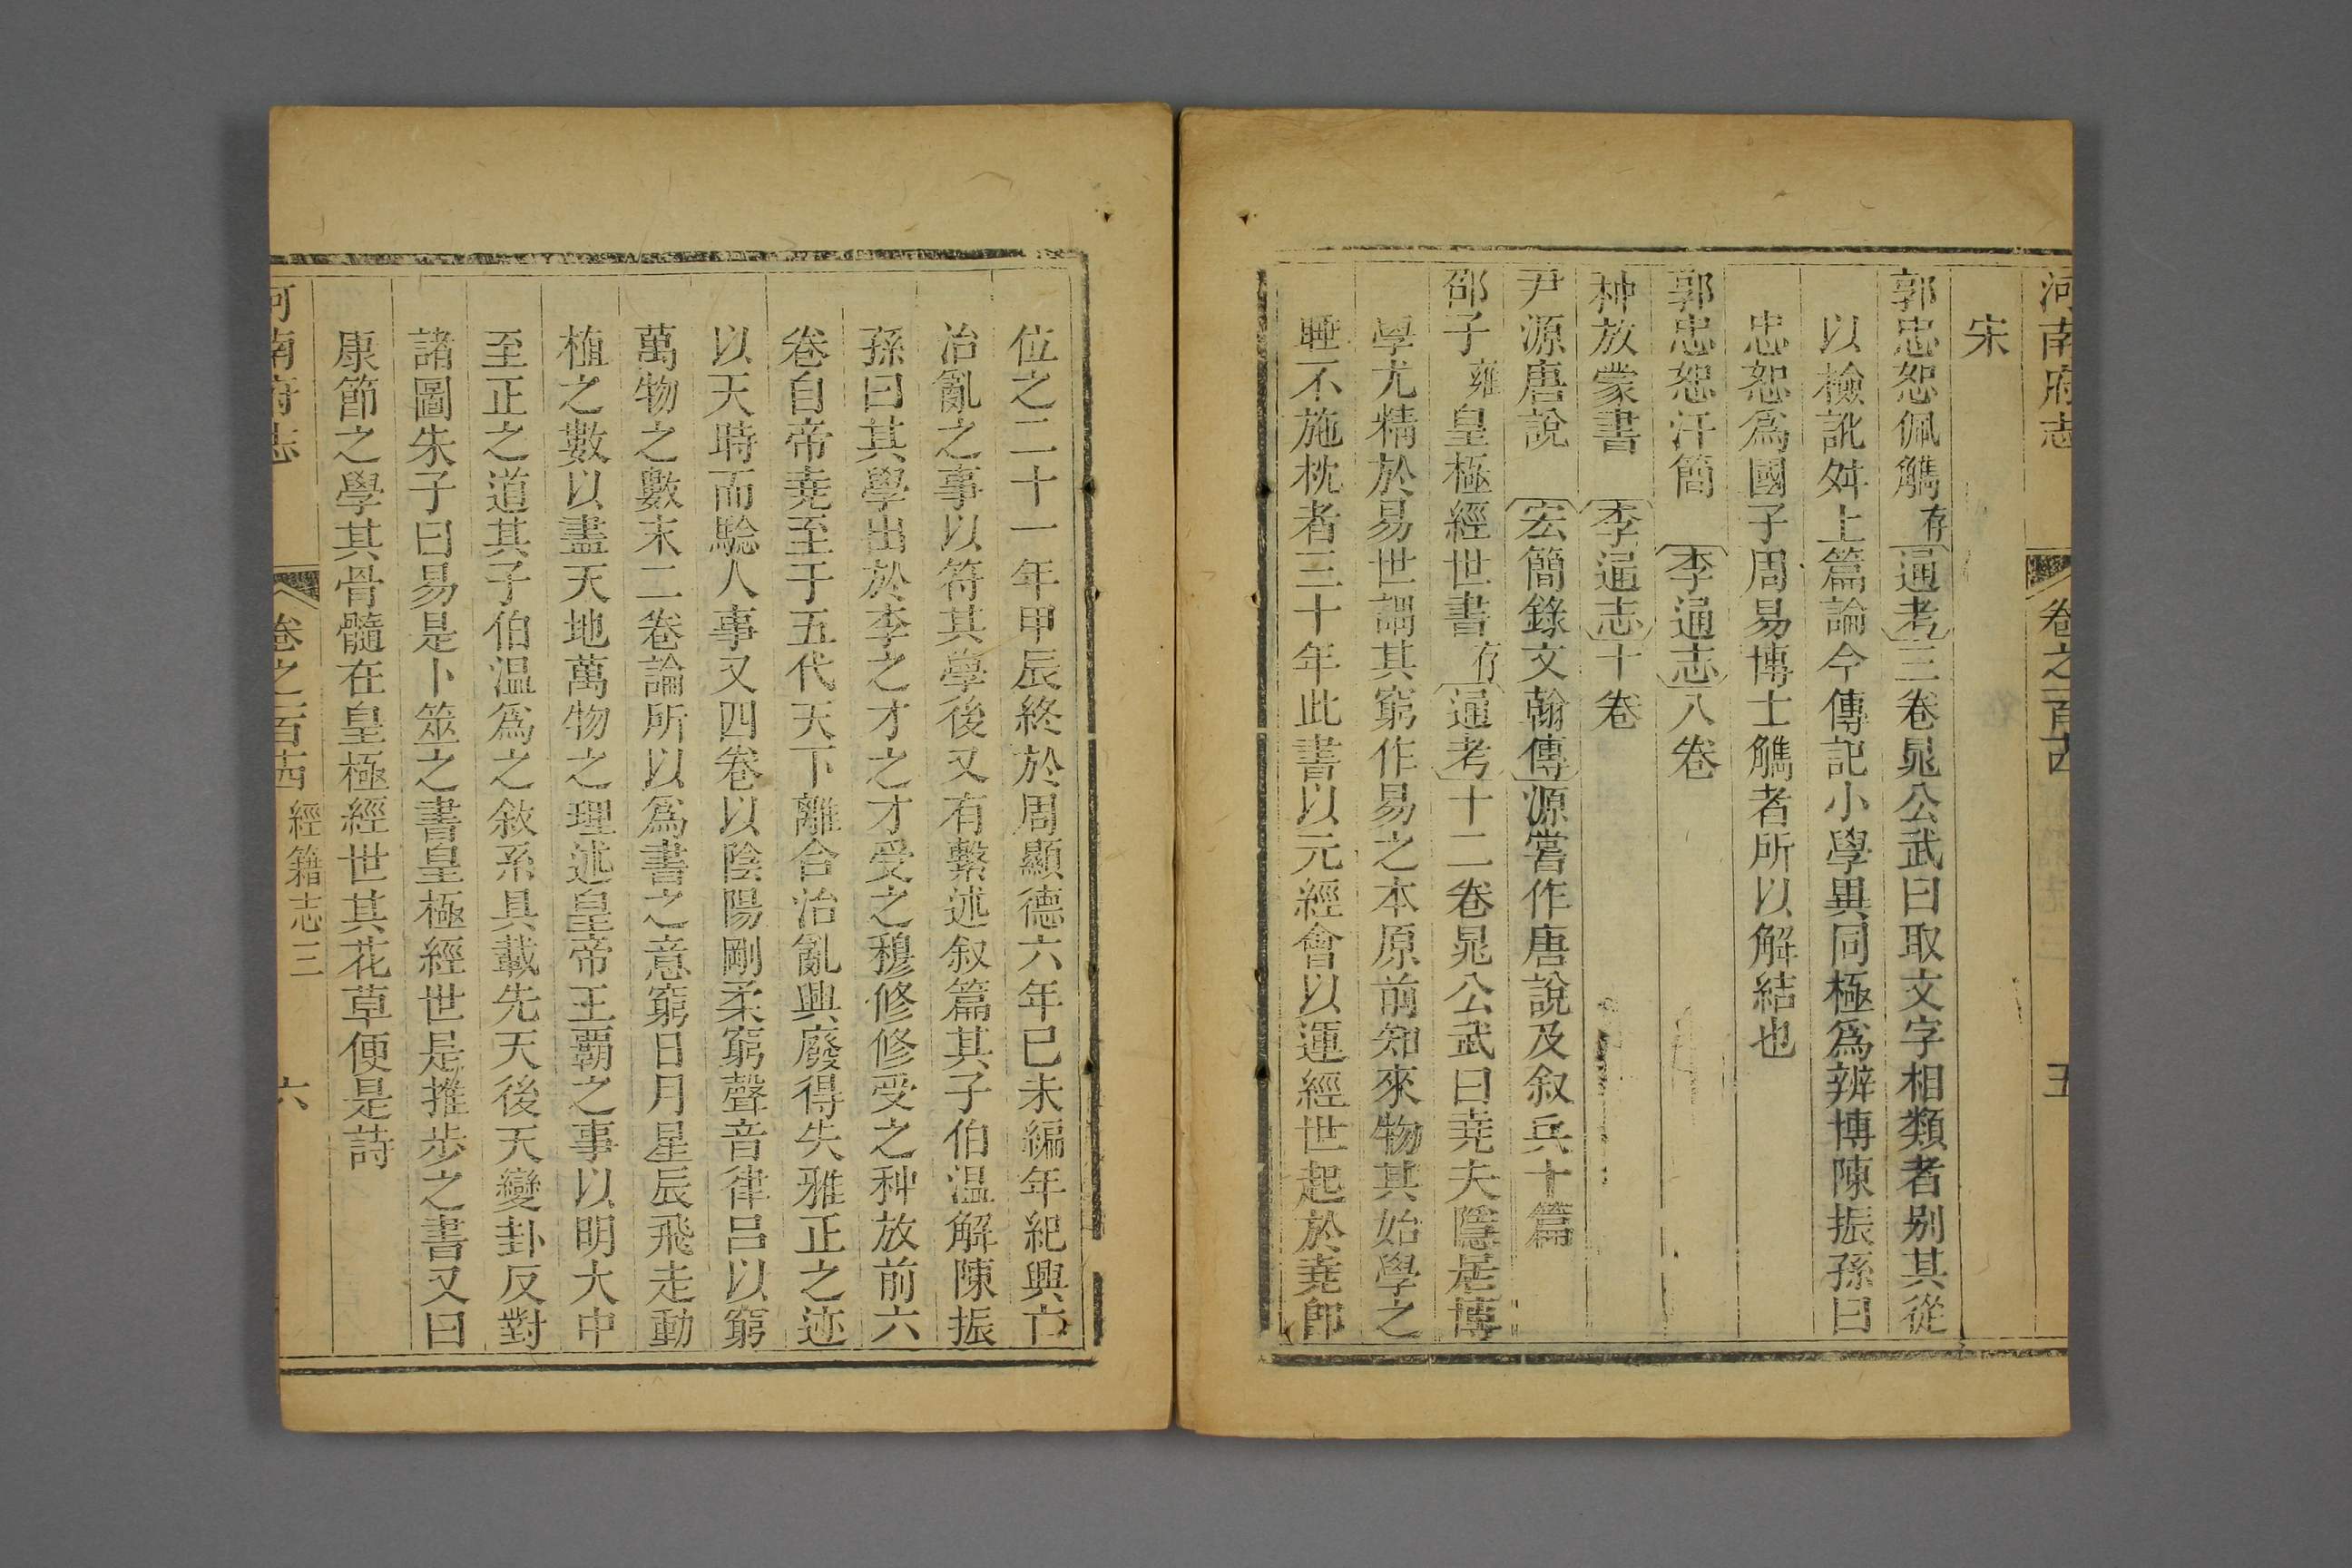 河南府志 卷之一百四 五
宋
郭忠恕佩觿存通考三卷晁公武曰取文字相類者别其從
以檢訛舛上篇論今傳記小學異同極爲辨博陳振孫曰
忠恕爲國子周易博士觿者所以解結也
郭忠恕汗簡李通志八卷
种放蒙書李通志十卷
尹源唐說宏簡錄文翰傳源嘗作唐說及叙兵十篇
邵子雍皇極經世書存通考十二卷晁公武曰堯夫隱居博
學尤精於易世謂其窮作易之本原前知來物其始學之
睡不施枕者三十年此書以元經會以運經世起於堯郎
位之二十一年甲辰終於周顯德六年已未編年紀興亡
治亂之事以符其學後又有繫述叙篇其子伯温解陳振
孫曰其學出於李之才之才受之穆修修受之种放前六
卷自帝堯至于五代天下離合治亂興廢得失雅正之迹
以天時而驗人事又四卷以陰陽剛柔窮聲音律呂以窮
萬物之數末二卷論所以爲書之意窮日月星辰飛走動
植之數以盡天地萬物之理述皇帝王霸之事以明大中
至正之道其子伯温爲之敘系具載先天後天變卦反對
諸圖朱子曰易是卜筮之書皇極經世是推步之書又曰
康節之學其骨髓在皇極經世其花草便是詩
河南府志 卷之一百四 經籍志三 六